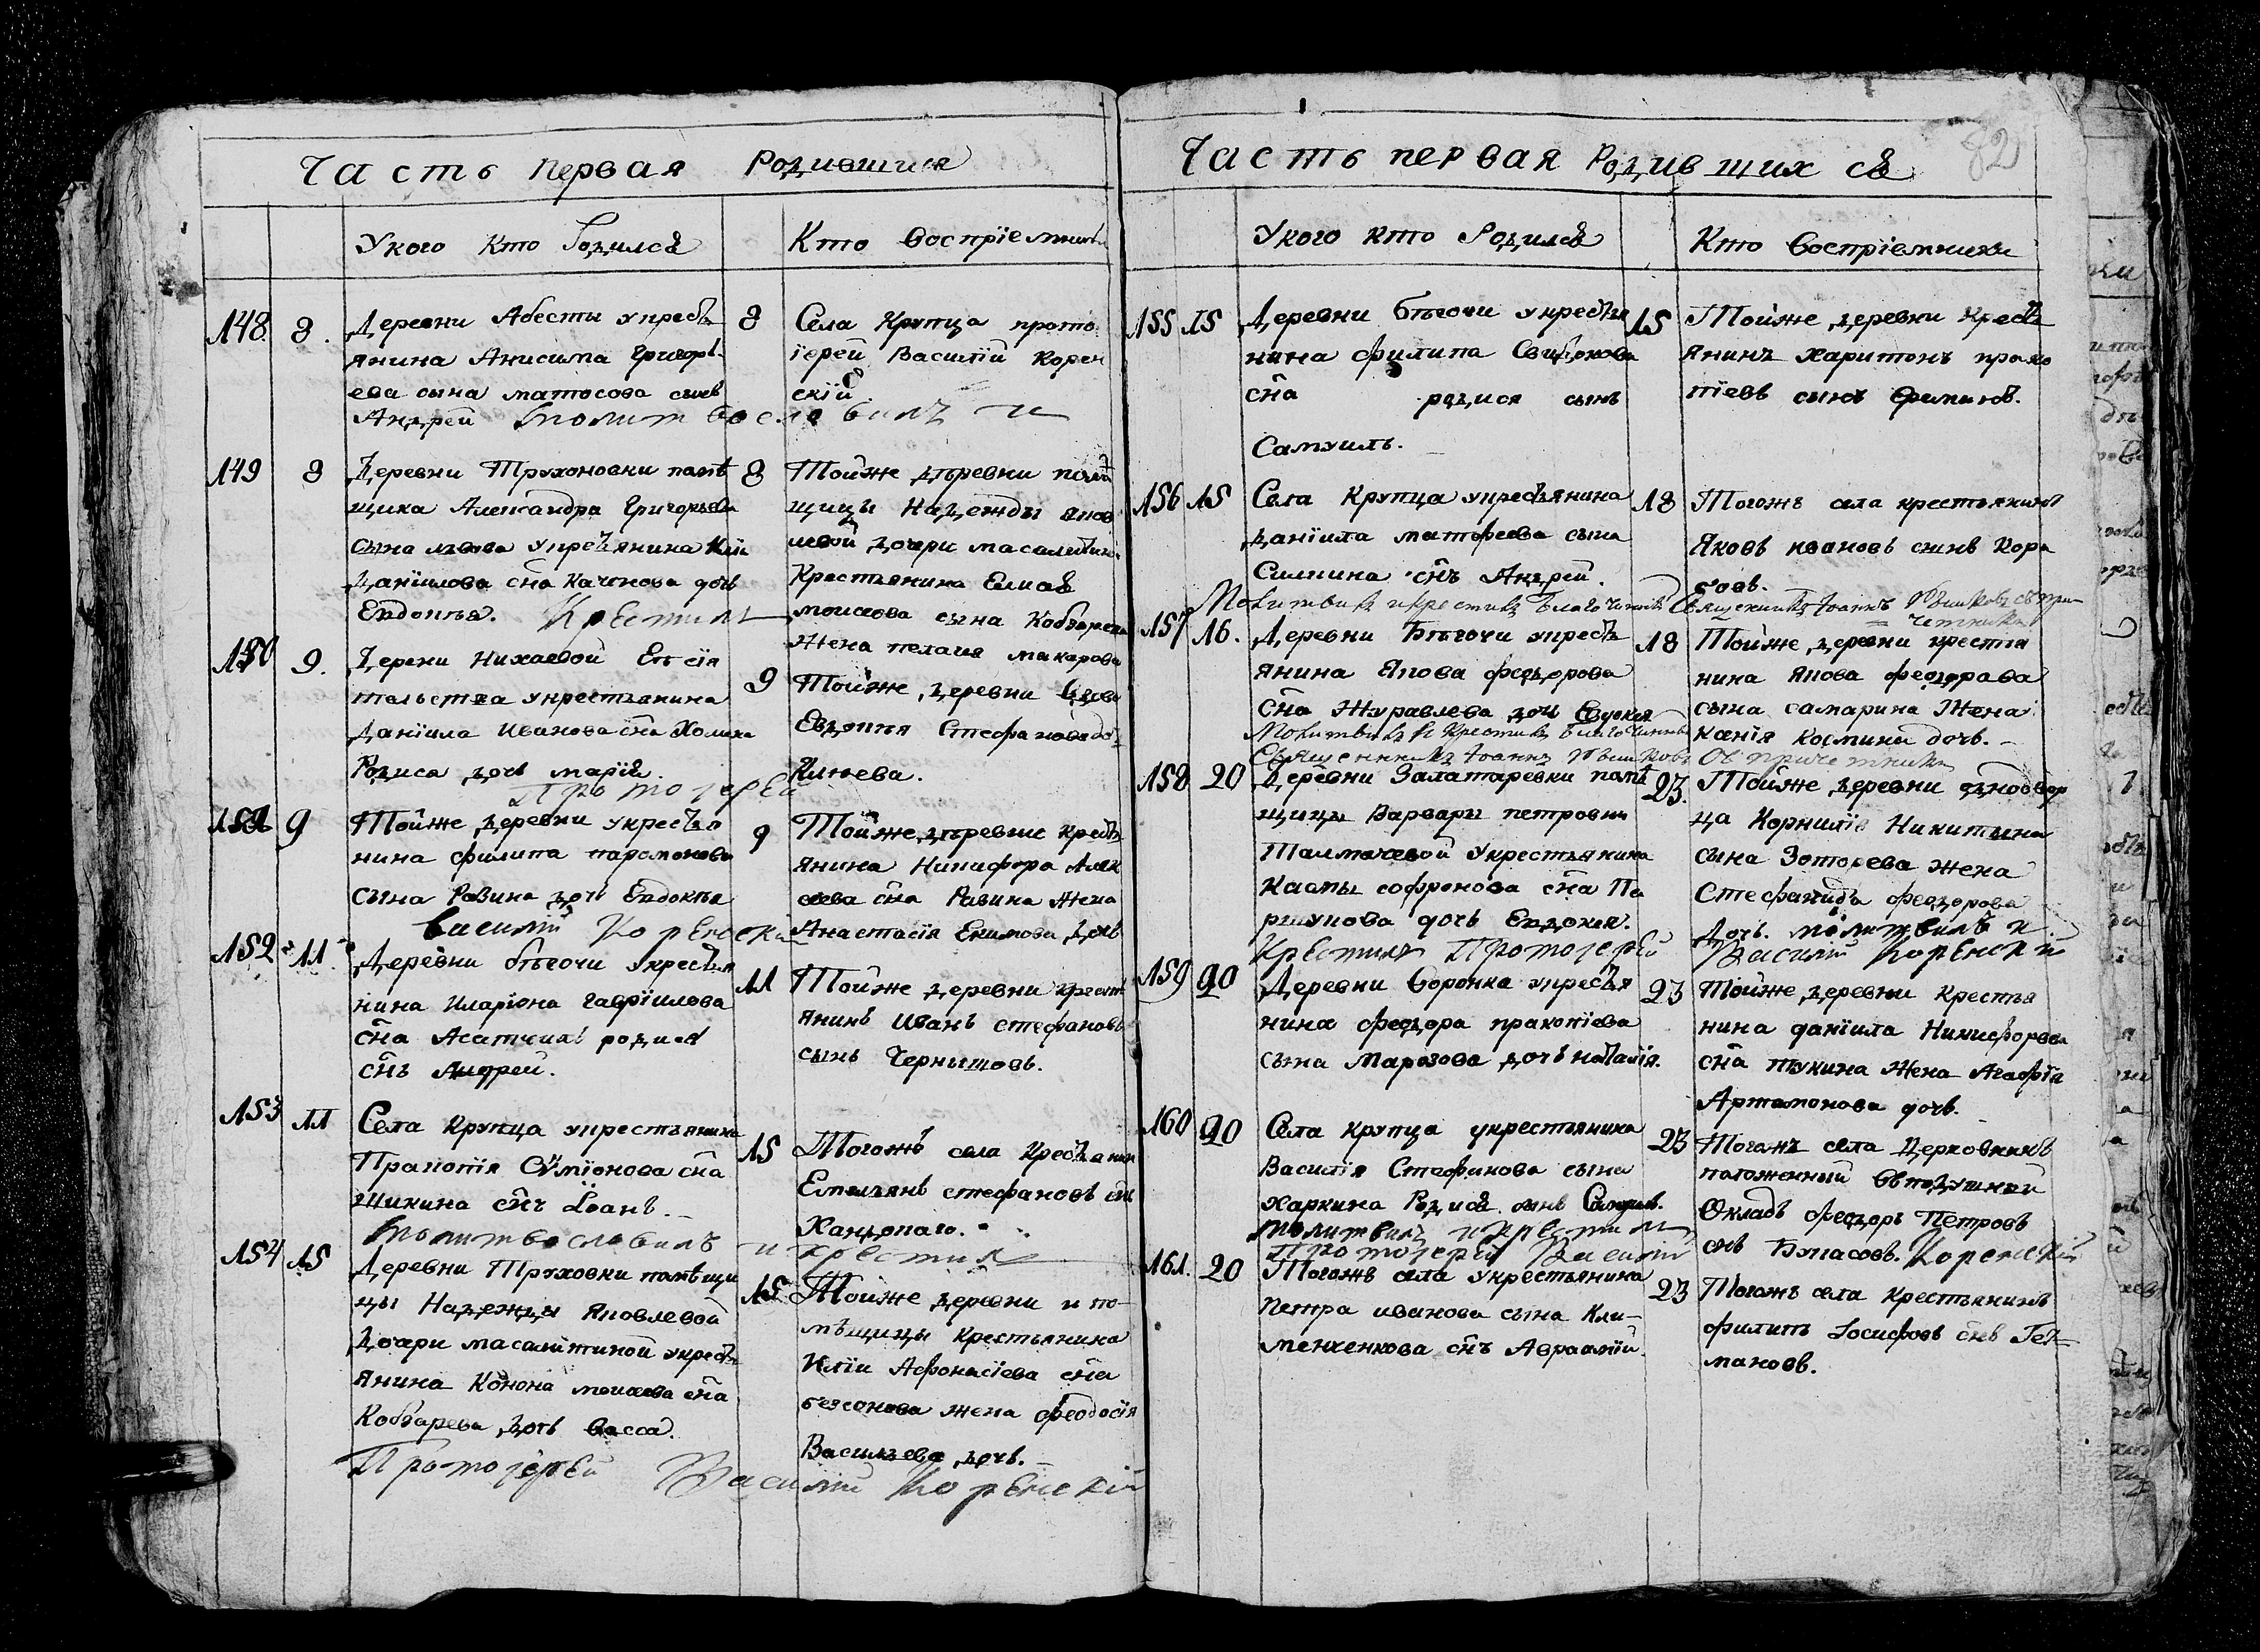 Часть первая Родившихся
У кого кто Родился
Кто Воспрiемники
148. 8.
Деревни Абесты у крестъ
янина Анисима Григорь
ева сына матюсова сынъ
Андрей молитвословилъ и
8
Села Крупца прото
iерей Василiй Корен
скiй
149 8
Деревни Трухоновки помѣ
щика Александра Григорьева
сына львова у крестъянина
Данiилова сна Каченова дочь
Евдокѣя. Крестилъ
8
Тойже дѣревни помѣ
щицы Надежды яков
левой дочери масалитин.
Крестьянина
моисеова сына Кобзарева
Жена пелагея макарова
150 9.
Дерени Нихаевой
тельства у крестьянина
Данiила Иванова сна Холина
Родися дочь марiя.
Протоiерей
9
Тойже деревни вдова
Евдокѣя Стефанова до
Климева.
151 9
Тойже деревни у крестъя
нина филипа парамонова
сына Равина дочь Евдокѣя
Василiй Коренскiй
9
Тойже дѣревни крестъ
янина Никифора Алек
сеева сна Равина Жена
Анастасiя Екимова дочь
152 11
Деревни бѣгочи у крестъя
нина Иларiона гаврiилова
сна родися
снъ Андрей.
11
Тойже деревни крестъ
янинъ Иванъ стефановъ
сынъ Чернышовъ.
153 11
Села Крупца у крестьянина
Пракопiя Сѵмiонова сна
Шикина снъ Iоанъ.
Молитвословилъ и крестилъ
15
Тогожъ села Крестъянин
Емельянъ стефановъ сн
Хандогаго.
154 15
Деревни Труховки помѣщи
цы Надежды Яковлевой
Дочери масалитиной у крестъ
янина Конона моисеева сна
Кобзарева дочь Васса.
Протоiерей Василiй Коренскiй
15
Тойже деревни и по-
мѣщицы Крестьянина
Илiи Афонасiева сна
безсонова жена феодосiя
Васильева дочь.
Часть первая Родившихся
82
У кого кто Родился
Кто Воспрiемники
155 15
Деревни бѣгочи у крестъя
нина филипа
сна родися сынъ
Самуилъ.
15
Тойже деревни Крестъ
янинъ харитонъ проко
пiевъ сынъ
156 15
Села Крупца у крестъянина
данiила матфеева сына
Силкина снъ Андрей.
Молитвилъ и крестилъ Благочинный Священникъ Iоаннъ съ при-
четники
18
Тогожъ села крестьянинъ
Яковъ ивановъ сынъ Кора
бовъ.
157 16.
Деревни Бѣгочи у крестъ
янина Якова федорова
сна Журавлева дочь
Молитвилъ и Крестилъ Благочинный
Священникъ Iоаннъ съ причетники
18
Тойже деревни крестья
нина Якова феодорова
сына самарина Жена
ксенiя Космина дочь.
158 20
Деревни Залатаревки помѣ
щицы Варвары петровны
Толмачевой у крестьянина
Касмы софронова сна Па
ршукова дочь Евдокея.
Крестилъ Протоiерей Василiй Коренскiй
23.
Тойже деревни однодвор
ца Корнилiя Никитина
сына Зоторева жена
Стефанида феодорова
Дочь. молитвилъ и
159 20
Деревни Воронка у крестъя
нина феодора пракопiева
сына Марозова дочь наталiя.
23
Тойже деревни Крестья
нина данiила Никифорова
сна тукина Жена Агафiя
Артамонова дочь.
160 20
Села крупца у крестьянина
Василiя Стефанова сына
харкина Родися сынъ Самуилъ.
молитвилъ и крестилъ
Протоiерей Василiй Коренскiй
23
Тогожъ села Церковникъ
положенный въ подушный
Окладъ феодоръ Петровъ
снъ
161. 20
Тогожъ села у крестьянина
Петра иванова сына Кли-
менченкова снъ Авраамiй.
23
Тогожъ села крестьянинъ
филипъ Iосифовъ снъ Гет-
мановъ.